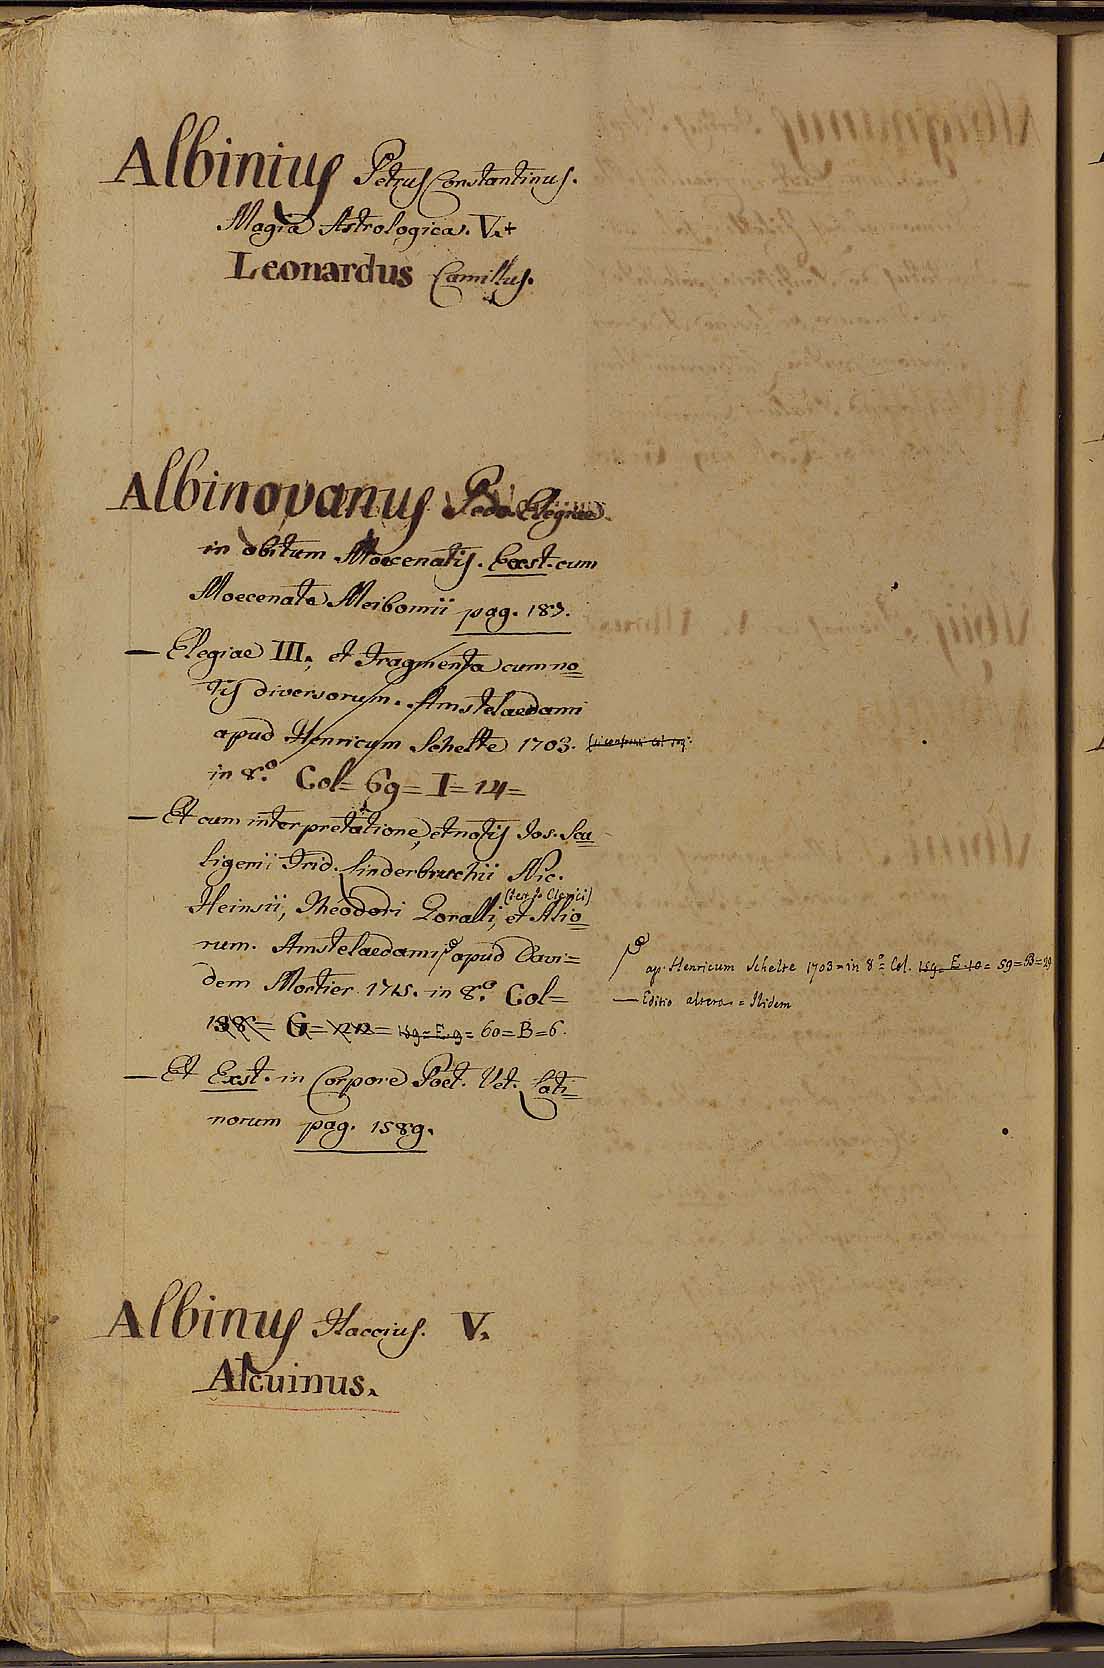 Albinius Petrus Constantinus.
Magia Astrologica. V.+
Leonardus Camillus.
Albinovanus Pedo Elegiae
in obitum Moecenatis. Exst. cum
Moecenate Meibomii pag. 187.
— Elegiae III. et Fragmenta cum no=
tis diversorum. Amstelaedami
apud Henricum Schelte 1703.
in 8.º Col= 69= I= 14=
— Et cum interpretatione, et notis Jos. Sca=
ligerii Frid. Linderbruchii Nic.
Heinsii, Theodori Goralli, (seu Jo Clerici) et Alio=
rum. Amstelaedami apud Davi=
dem Mortier 1715. in 8.º Col=
138= G= 12= 159= E. 9= 60= B= 6.
— Et Exst. in Corpore Poet. Vet. Lati=
norum pag. 1589.
ap. Henricum Schelte 1703= in 8.º= Col. 159= E. 10= 59= B= 29
— Editio altera= Ibidem
Albinus Flaccus. V.
Alcuinus.